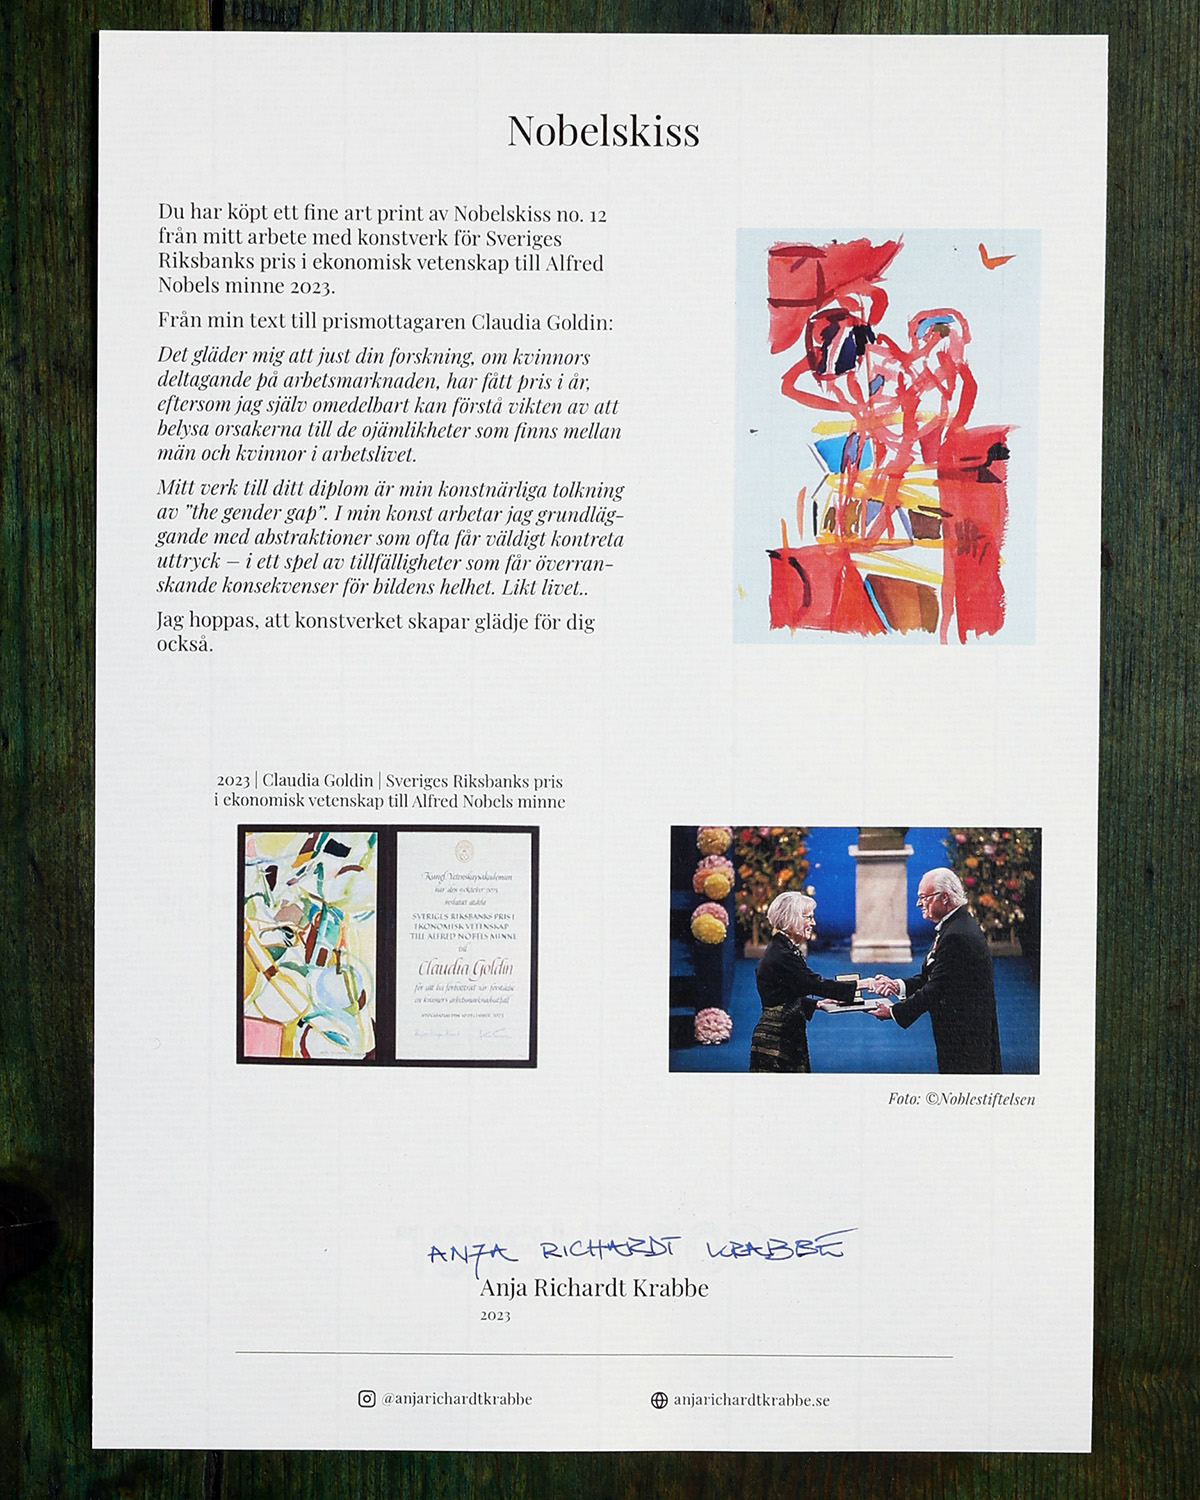 Nobelskiss
Du har köpt ett fine art print av Nobelskiss no. 12
från mitt arbete med konstverk för Sveriges
Riksbanks pris i ekonomisk vetenskap till Alfred
Nobels minne 2023.
Från min text till prismottagaren Claudia Goldin:
Det gläder mig att just din forskning, om kvinnors
deltagande på arbetsmarknaden, har fått pris i år,
eftersom jag själv omedelbart kan förstå vikten av att
belysa orsakerna till de ojämlikheter som finns mellan
män och kvinnor i arbetslivet.
Mitt verk till ditt diplom är min konstnärliga tolkning
av ”the gender gap”. I min konst arbetar jag grundläg-
gande med abstraktioner som ofta får väldigt kontreta
uttryck – i ett spel av tillfälligheter som får överran-
skande konsekvenser för bildens helhet. Likt livet..
Jag hoppas, att konstverket skapar glädje för dig
också.
2023 | Claudia Goldin | Sveriges Riksbanks pris
i ekonomisk vetenskap till Alfred Nobels minne
Kungl. Vetenskapsakademien
har den 9 oktober 2023
beslutat utdela
SVERIGES RIKSBANKS PRIS I
EKONOMISK VETENSKAP
TILL ALFRED NOBELS MINNE
till
Claudia Goldin
för att ha förbättrat vår förståelse
av kvinnors arbetsmarknadsutfall
Foto: ©Noblestiftelsen
ANJA RICHARDT KRABBE
Anja Richardt Krabbe
2023
@anjarichardtkrabbe
anjarichardtkrabbe.se